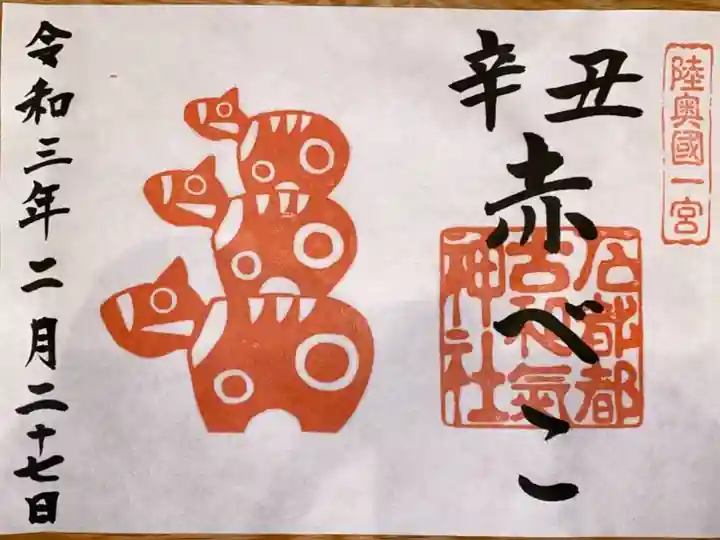 陸奥國一宮
辛丑
赤べこ
石都都
古和氣
神社
令和三年二月二十七日